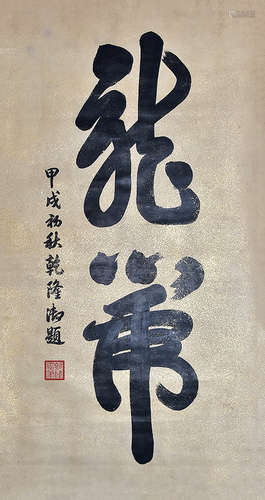 龍虎
甲戌初秋乾隆御題